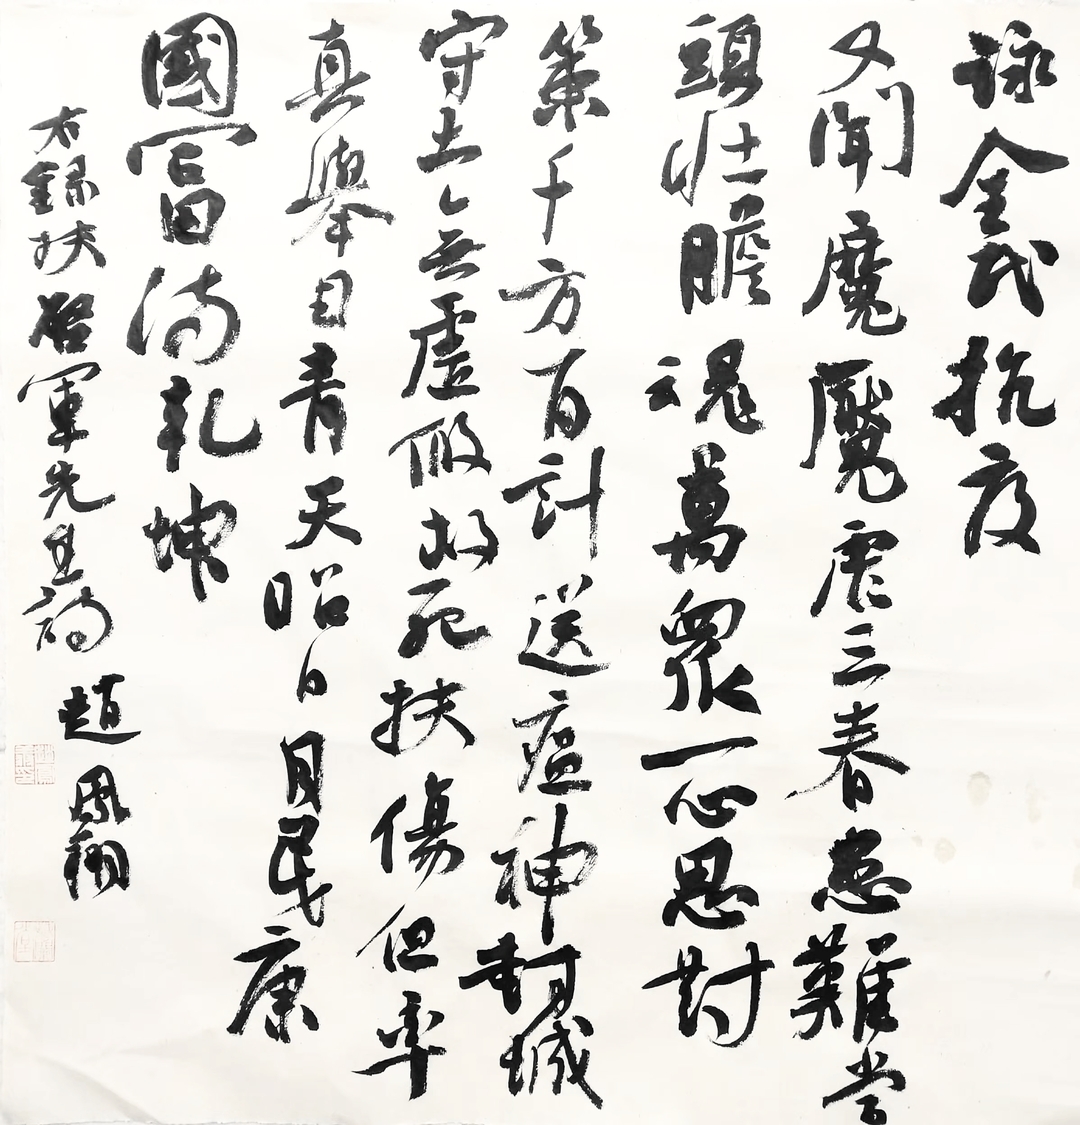 詠全民抗疫
又聞魔魘虐三春患難當
頭壯膽魂萬眾一心思對
策千方百計送瘟神封城
守土無虛假救死扶傷但率
真舉目青天昭日月民康
國富滿乾坤
右錄扶軍先生詩
趙鳳翔